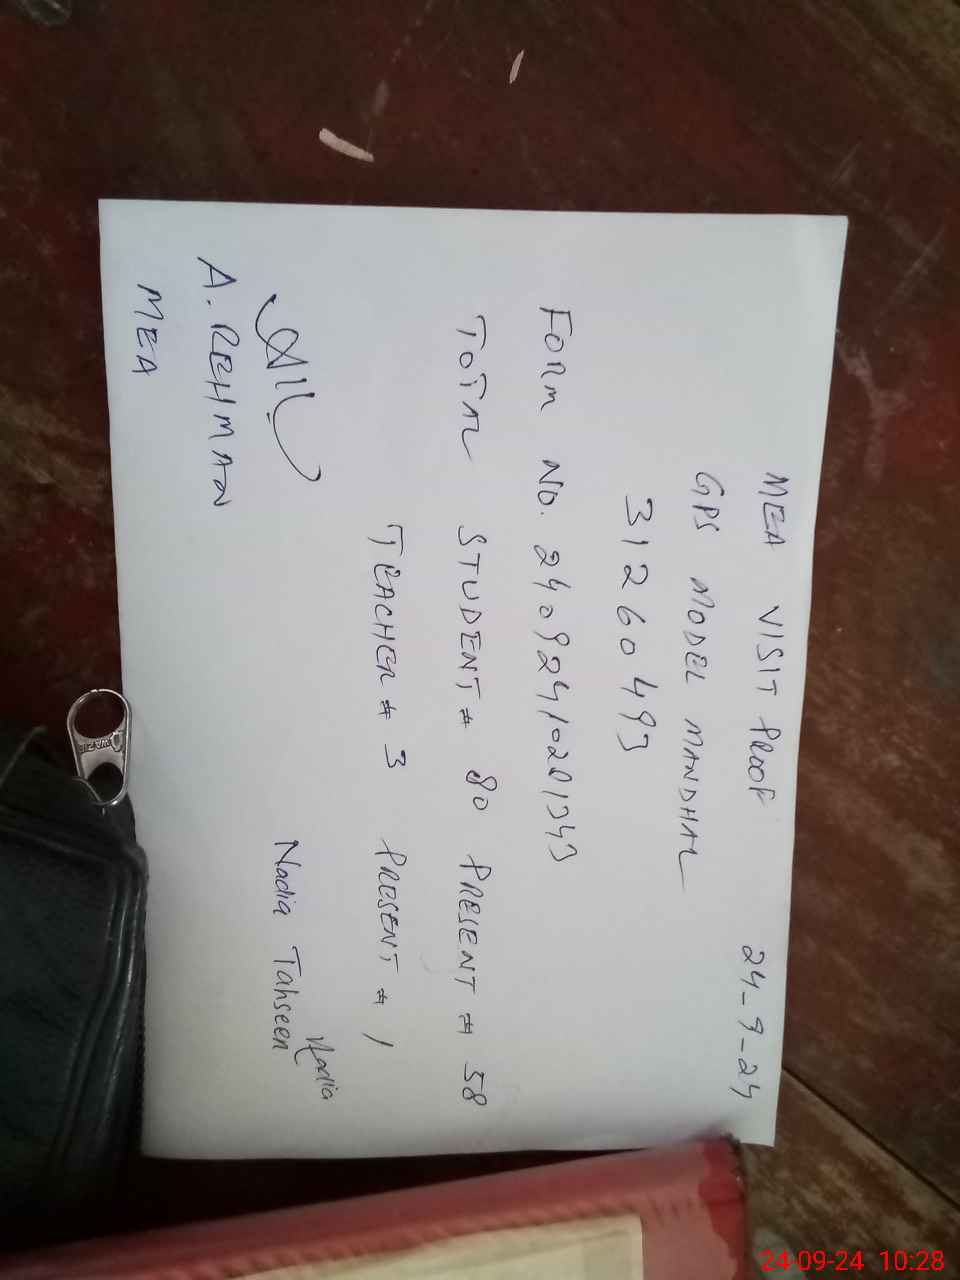 MEA VISIT PROOF 24-9-24
GPS MODEL MANDHAL
31260493
FORM NO. 24092410201343
TOTAL STUDENT # 80 PRESENT # 58
TEACHER # 3 PRESENT # 1
Nadia
Nadia Tahseen
A. REHMAN
MEA
24-09-24 10:28